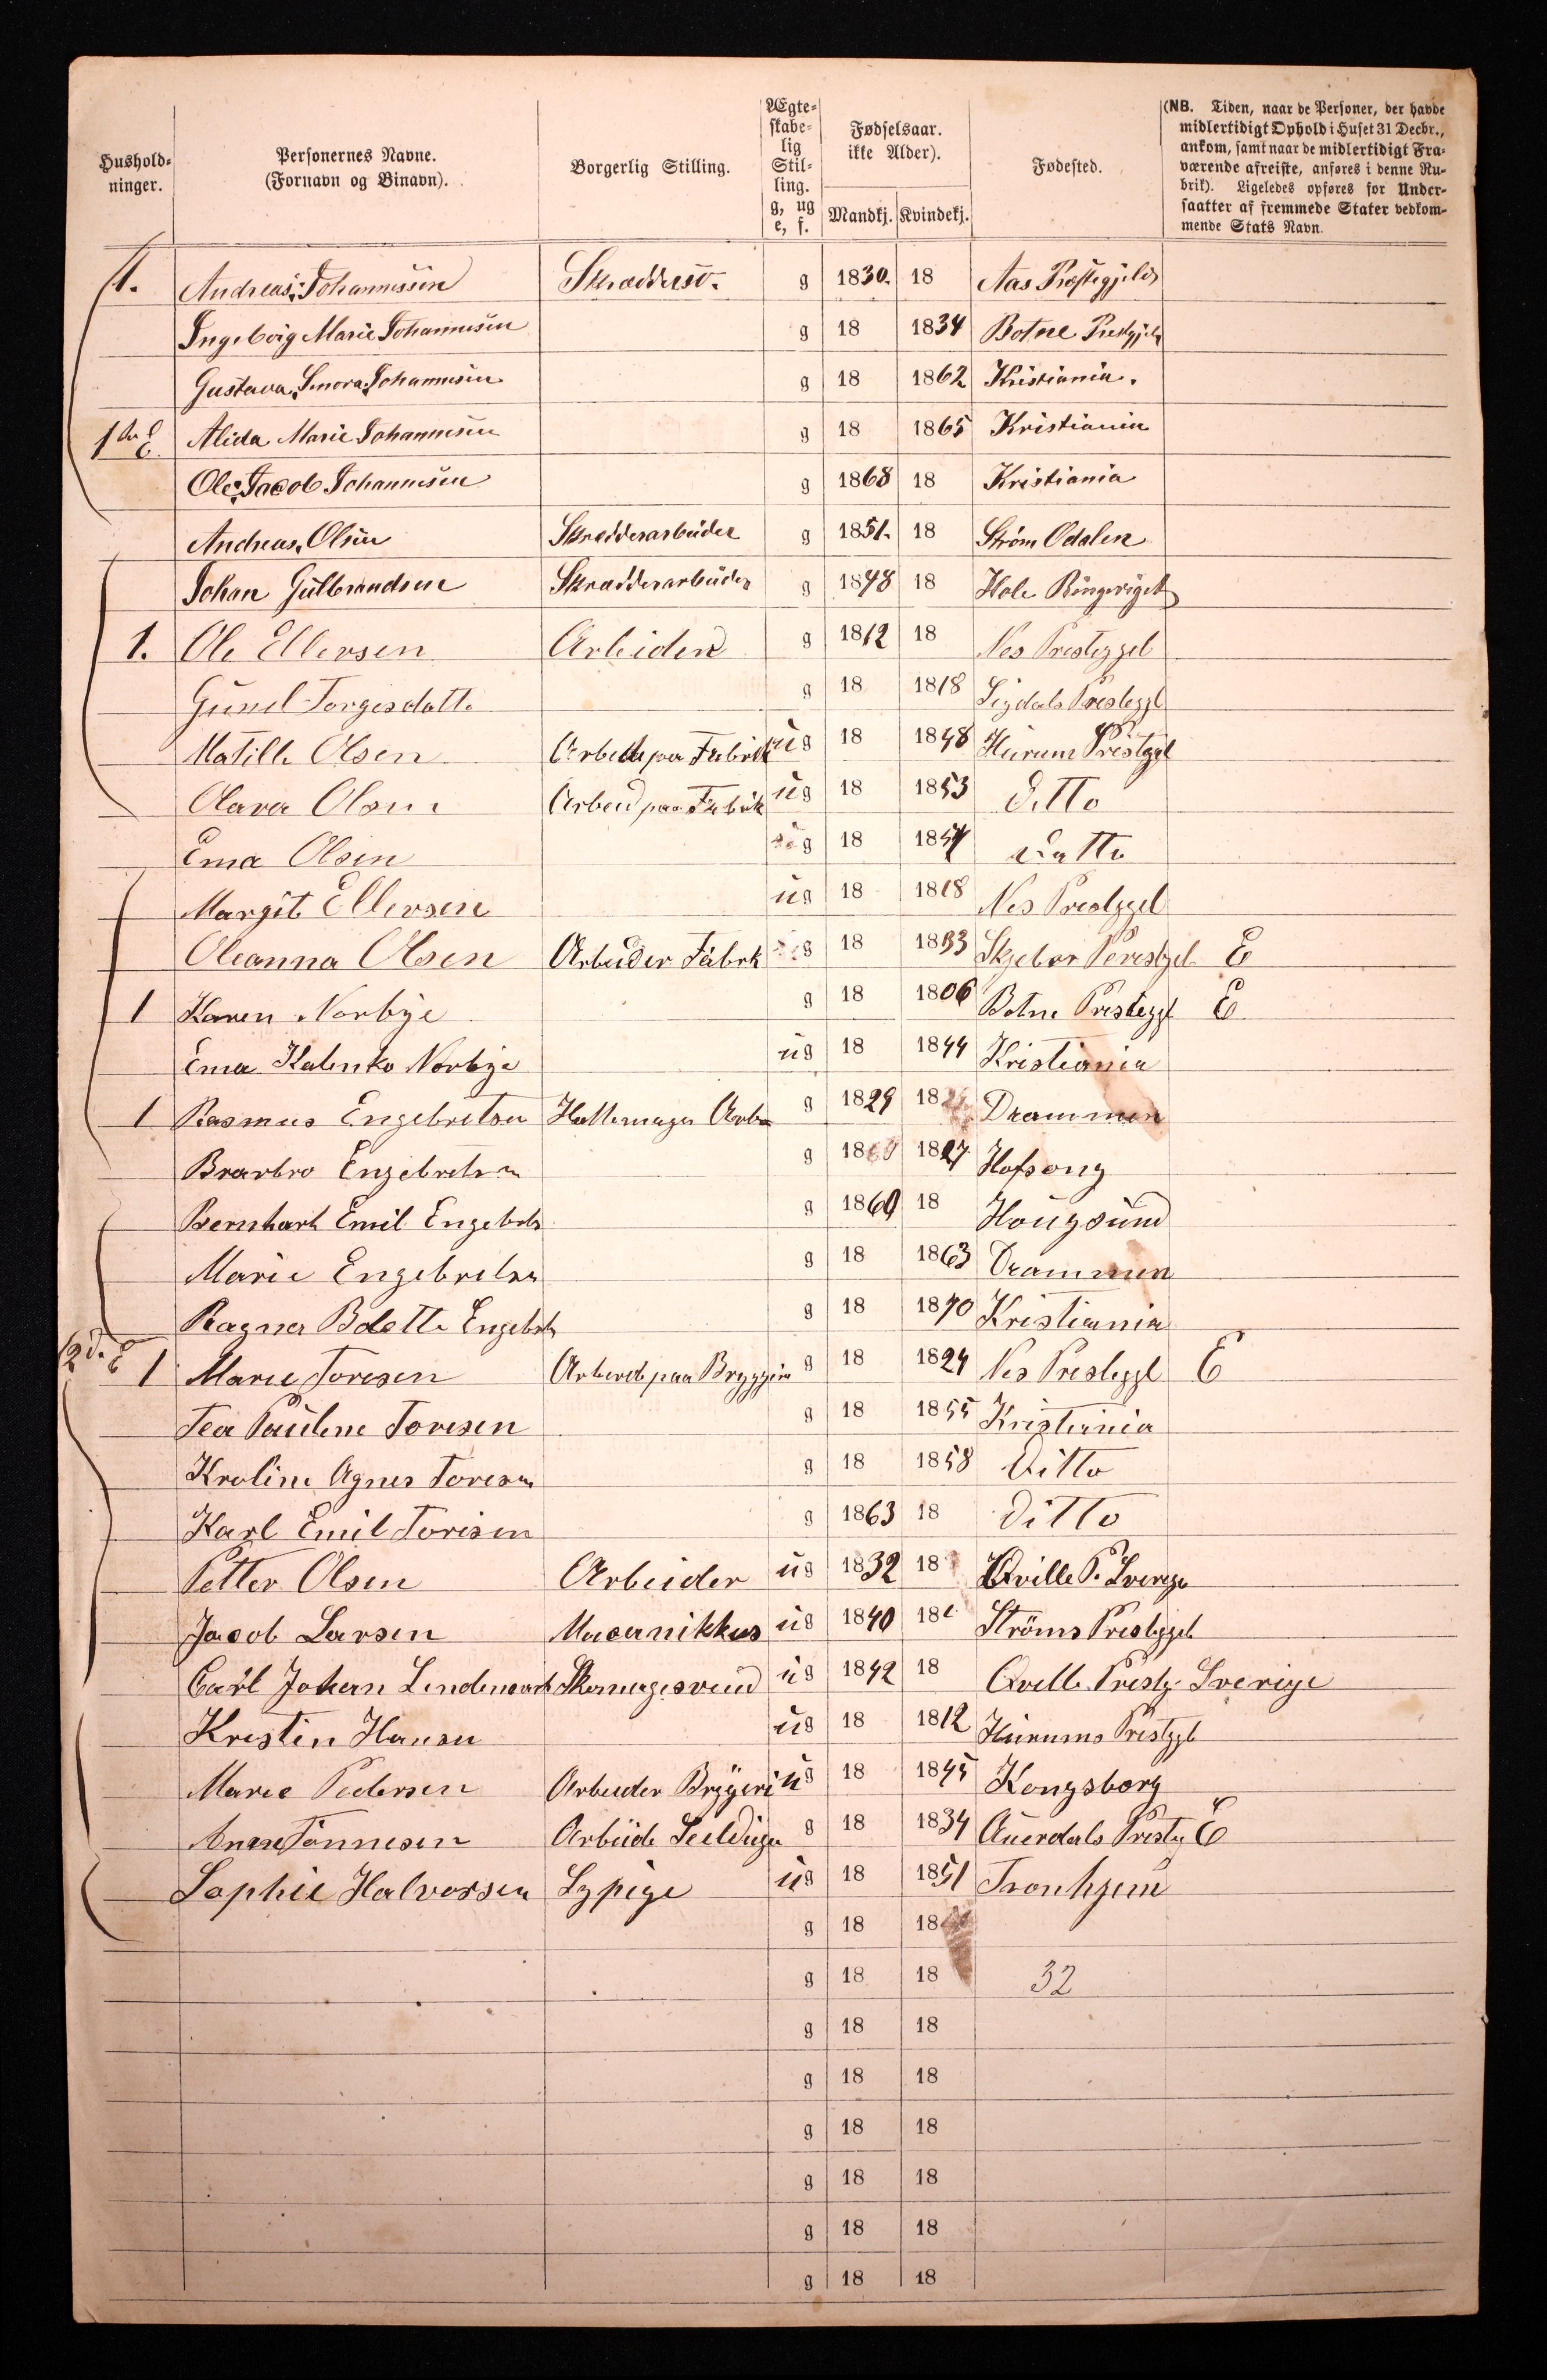 Hushold-
ninger.
Personernes Navne.
(Fornavn og Binavn).
Borgerlig Stilling.
Ægte-
skabe-
lig
Stil-
ling.
g, ug
e, f.
Fødselsaar.
ikke Alder).
Mandkj. Kvindekj.
Fødested.
(NB. Tiden, naar de Personer, der havde
midlertidigt Ophold i Huset 31 Decbr.,
ankom, samt naar de midlertidigt Fra-
værende afreiste, anføres i denne Ru-
brik). Ligeledes opføres for Under-
saatter af fremmede Stater vedkom-
mende Stats Navn.
1. Andreas Johannesen Skræddersv. g 1830. 18 Aas Præstegjeld
Ingeborg Marie Johannesen g 18 1834 Botne Prestgjeld
Gustava Johannesen g 18 1862 Kristiania.
1ste E. Alida Marie Johannesen g 18 1865 Kristiania
Ole Jacob Johannesen g 1868 18 Kristiania
Andreas Olsen Skredderarbeider g 1851. 18 Strøm Odalen
Johan Gulbrandsen Skredderarbeider g 1848 18 Hole Ringeriget
1. Ole Ellersen Arbeider g 1812 18 Nes Presteggel
Gunel Torgesdatte g 18 1818 Sigdals Presteggl
Matille Olsen Arbeide paa Fabrik ug 18 1848 Hurum Prestgel
Olava Olsen Arbeid paa Fabrik ug 18 1853 Ditto
Ema Olsen ug 18 1854 Ditto
Margit Ellersen ug 18 1818 Nes Prestggel
Oleanna Olsen Arbeider Fabrk ug 18 1833 Skjeber Perestgel E
1 Karen Norbye g 18 1806 Botne Presteggl E
Ema Kalenka Norbye ug 18 1844 Kristiania
1 Rasmus Engebretsen Hattemager Arb g 1829 18 Drammen
Brarbro Engebretsen g 18 1827 Hofsong
Bernhart Emil Engebrets g 1860 18 Hougsund
Marie Engebretsen g 18 1863 Drammen
Ragna Bolette Engebrets g 18 1870 Kristiania
2d. E 1 Marie Toresen Arbeid paa Bryggeri g 18 1824 Nes Presteggl E
Tea Pauline Toresen g 18 1855 Kristiania
Kroline Agnes Toresen g 18 1858 Ditto
Karl Emil Toresen g 1863 18 Ditto
Petter Olsen Arbeider ug 1832 18 Qville P. Sverige
Jacob Larsen Macanikkus ug 1840 18 Ströms Prestggel
Carl Johan Skomagesvend ug 1842 18 Qville Prestg. Sverige
Kristin Hansen ug 18 1812 Hurums Prestggl
Marie Pedersen Arbeider Bryggeri ug 18 1845 Kongsborg
Anne Tonnesen Arbeide g 18 1834 Auerdals Prestg E
Sophie Halvorsen Sypige ug 18 1851 Tronhjem
g 18 18
g 18 18 32
g 18 18
g 18 18
g 18 18
g 18 18
g 18 18
g 18 18